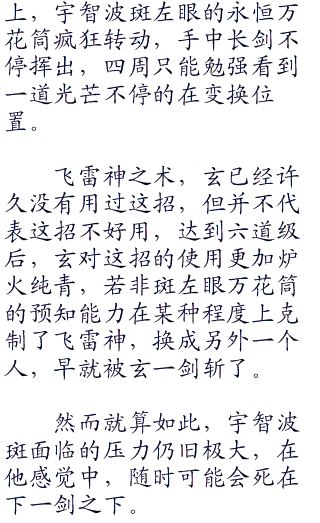 上，宇智波斑左眼的永恒万
花筒疯狂转动，手中长剑不
停挥出，四周只能勉强看到
一道光芒不停的在变换位
置。
飞雷神之术，玄已经许
久没有用过这招，但并不代
表这招不好用，达到六道级
后，玄对这招的使用更加炉
火纯青，若非斑左眼万花筒
的预知能力在某种程度上克
制了飞雷神，换成另外一个
人，早就被玄一剑斩了。
然而就算如此，宇智波
斑面临的压力仍旧极大，在
他感觉中，随时可能会死在
下一剑之下。